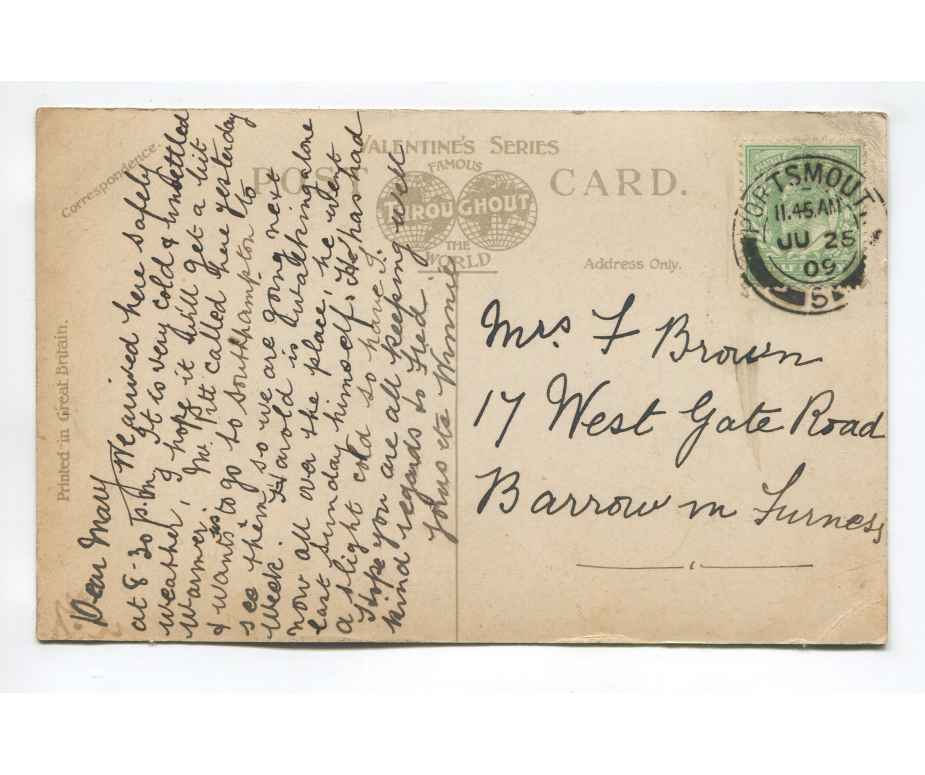 Correspondence.
VALENTINE'S SERIES
POST CARD.
FAMOUS
THROUGHOUT
THE
WORLD
Address Only.
Printed in Great Britain.
PORTSMOUTH
11.45 AM
JU 25
09
Mrs F Brown
17 West Gate Road
Barrow in Furness
Dear Mary We arrived here safely
at 8-30 p.m. It is very cold & unsettled
weather, I hope it will get a bit
warmer, Mr Pitt called here yesterday
& wants to go to Southampton to
see them so we are going next
week. Harold is walking alone
now all over the place, he went
last Sunday himself. He has had
a slight cold so have I.
Hope you are all keeping well
kind regards to Fred.
yours etc Winnie